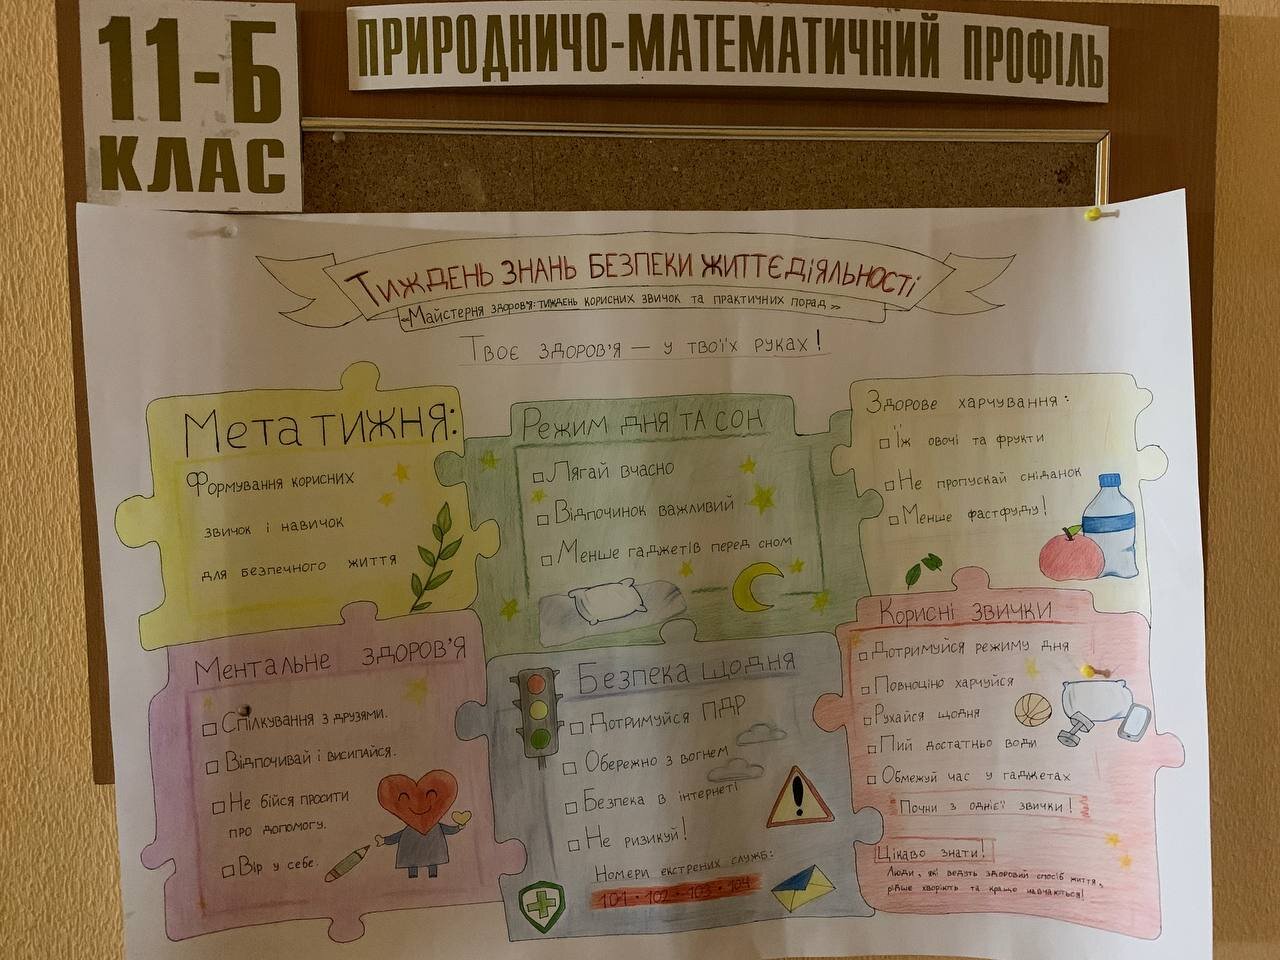 11-Б
КЛАС
ПРИРОДНИЧО-МАТЕМАТИЧНИЙ ПРОФІЛЬ
ТИЖДЕНЬ ЗНАНЬ БЕЗПЕКИ ЖИТТЄДІЯЛЬНОСТІ
«Майстерня здоров'я: тиждень корисних звичок та практичних порад»
Твоє здоров'я — у твоїх руках!
Мета тижня:
Формування корисних
звичок і навичок
для безпечного життя
Режим дня та сон
Лягай вчасно
Відпочинок важливий
Менше гаджетів перед сном
Здорове харчування:
Їж овочі та фрукти
Не пропускай сніданок
Менше фастфуду!
Ментальне здоров'я
Спілкування з друзями.
Відпочивай і висипайся.
Не бійся просити
про допомогу.
Вір у себе.
Безпека щодня
Дотримуйся ПДР
Обережно з вогнем
Безпека в інтернеті
Не ризикуй!
Номери екстрених служб:
101 · 102 · 103 · 104
Корисні звички
Дотримуйся режиму дня
Повноціно харчуйся
Рухайся щодня
Пий достатньо води
Обмежуй час у гаджетах
Почни з однієї звички!
Цікаво знати!
Люди, які ведуть здоровий спосіб життя,
рідше хворіють та краще навчаються!